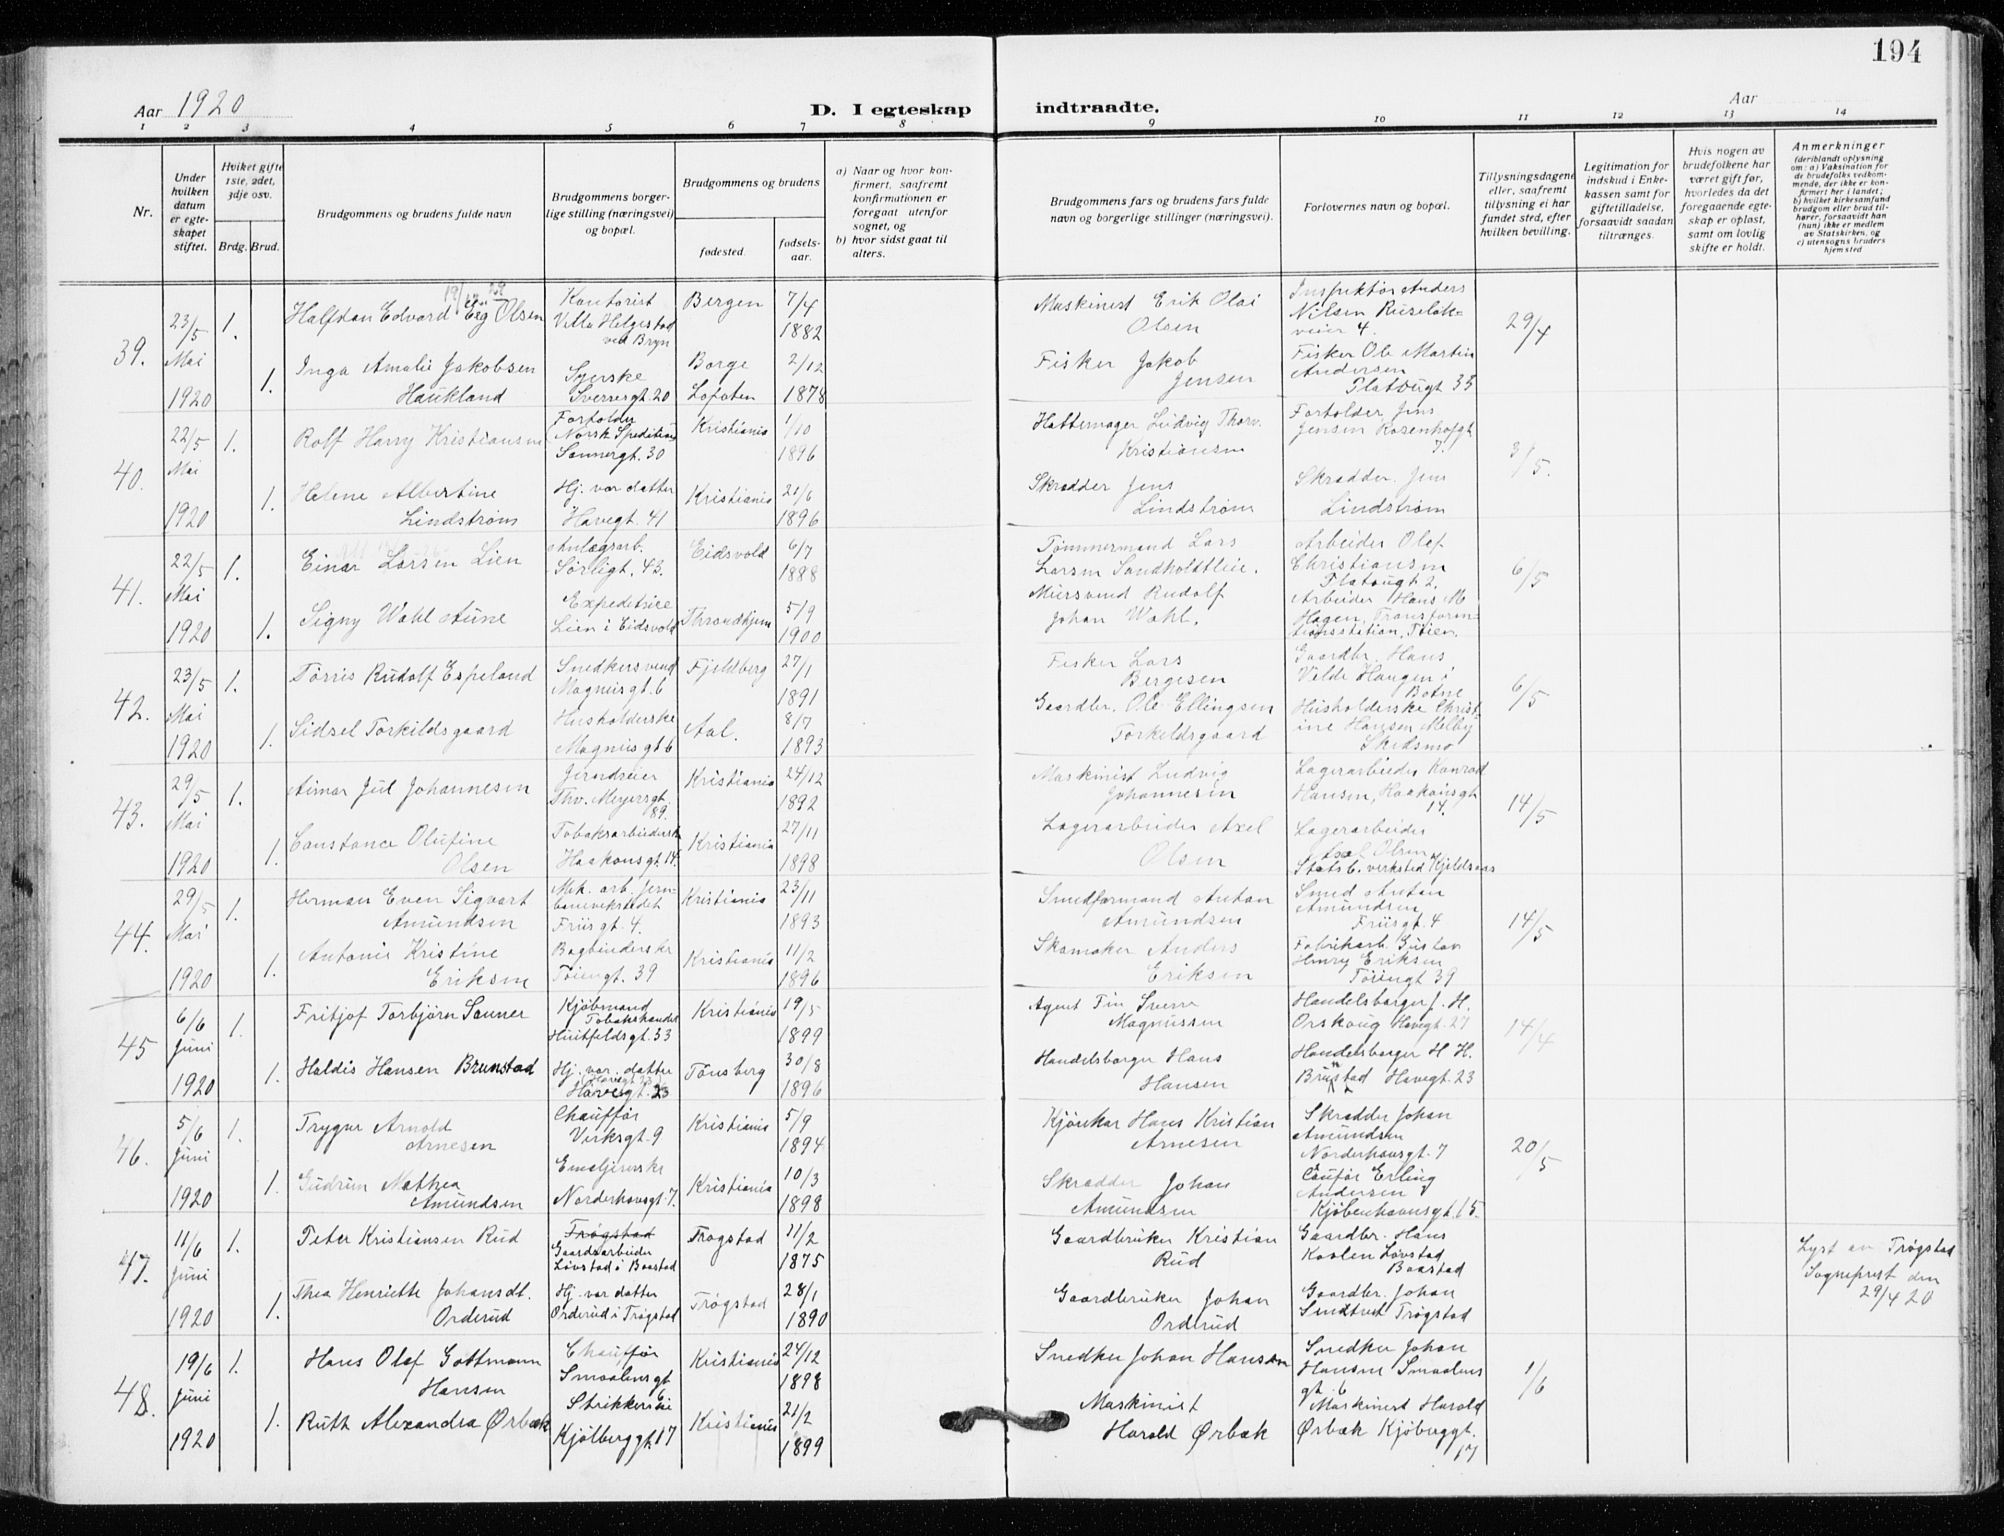 194
Aar 1920
D. I egteskap indtraadte.
Aar
1 2 3 4 5 6 7 8 9 10 11 12 13 14
Nr.
Under hvilken datum er egteskapet stiftet.
Hvilket gifte 1ste, 2det, 3dje osv.
Brdg. Brud.
Brudgommens og brudens fulde navn
Brudgommens borgerlige stilling (næringsvei) og bopæl.
Brudgommens og brudens
fødested.
fødselsaar.
a) Naar og hvor konfirmert, saafremt konfirmationen er foregaat utenfor sognet, og
b) hvor sidst gaat til alters.
Brudgommens fars og brudens fars fulde navn og borgerlige stillinger (næringsvei).
Forlovernes navn og bopæl.
Tillysningsdagene eller, saafremt tillysning ei har fundet sted, efter hvilken bevilling.
Legitimation for indskud i Enkekassen samt for giftetilladelse, forsaavidt saadan tiltrænges.
Hvis nogen av brudefolkene har været gift før, hvorledes da det foregaaende egteskap er opløst, samt om lovlig skifte er holdt.
Anmerkninger
(deriblandt oplysning om: a) Vaksination for de brudefolks vedkommende, der ikke er konfirmert her i landet; b) hvilket kirkesamfund brudgom eller brud tilhører, forsaavidt han (hun) ikke er medlem av Statskirken, og c) utensogns bruders hjemsted
39. 23/5 Mai 1920
1. Halfdan Edvard Eeg Olsen
Kontorist Villa Helgestad ved Bryn
Bergen 7/4 1882
Maskinist Erik Olai Olsen
Inspektør Anders Nilsen Ruseløkveien 4.
29/4
1. Inga Amalie Jakobsen Haukland
Syerske Sverresgt. 20
Borge Lofoten 2/12 1878
Fisker Jakob Jensen
Fisker Ole Martin Andersen Platougt 35
40. 22/5 Mai 1920
1. Rolf Harry Kristiansen
Fortolder Norsk Spedition Sannergt. 30
Kristiania 1/10 1896
Hattemager Ludvig Thorv. Kristiansen
Fortolder Jens Jensen Rosenhofgt 7.
3/5.
1. Helene Albertine Lindstrøm
Hj. vær. datter Havegt. 41
Kristiania 21/6 1896
Skrædder Jens Lindstrøm
Skrædder Jens Lindstrøm
41. 22/5 Mai 1920
1. Einar Larsen Lien
Anlægsarb. Sørligt. 43.
Eidsvold 6/7 1888
Tømmermand Lars Larsen Sandholdtleie.
Arbeider Olaf Christiansen Platougt 2.
6/5
1. Signy Wahl Aune
Expeditrice Lien i Eidsvold
Throndhjem 5/9 1900
Murersvend Rudolf Johan Wahl.
Arbeider Hans M Hagen, Transformationsstation, Tøien.
42. 23/5 Mai 1920
1. Tørris Rudolf Espeland
Snedkersvend Magnusgt. 6
Fjeldberg 27/1 1891
Fisker Lars Bergesen
Gaardbr. Hans Velde Haugen i Botne
6/5
1. Sidsel Torkildsgaard
Husholderske Magnusgt 6
Aal. 8/7 1893
Gaardbr. Ole Ellingsen Torkildsgaard
Husholderske Christine Hansen Melby Skedsmo
43. 29/5 Mai 1920
1. Aimar Jul Johannesen
Jerndreier Thv. Meyersgt. 89.
Kristiania 24/12 1892
Maskinist Ludvig Johannesen
Lagerarbeider Konrad Hansen, Haakonsgt 14.
14/5
1. Constance Olufine Olsen
Tobaksarbeiderske Haakonsgt. 14.
Kristiania 27/11 1898
Lagerarbeider Axel Olsen
Lagerarbeider Axel Olsen
44. 29/5 Mai 1920
1. Herman Even Sigvart Amundsen
Mek. arb. Jernbaneverkstedet Friisgt. 4.
Kristiania 23/11 1893
Smedformand Anton Amundsen
Statsb. verksted Kjeldsaas
Smed Anton Amundsen Friisgt. 4
14/5
1. Antonie Kristine Eriksen
Bogbinderske Tøiengt. 39
Kristiania 11/2 1896
Skomaker Anders Eriksen
Fabrikarb. Gustav Henry Eriksen Tøiengt 39
45 6/6 Juni 1920
1. Fritjof Torbjørn Sanner
Kjøbmand Tobakshandel Huitfeldsgt. 33
Kristiania 19/5 1899
Agent Finn Sverre Magnussen
Handelsborger J. H. Orskoug Havegt. 27
14/4
1. Haldis Hansen Brunstad
Hj. vær. datter Havegt. 23
Tønsberg 30/8 1896
Handelsborger Hans Hansen
Handelsborger H H. Brunstad Havegt. 23
46. 5/6 Juni 1920
1. Trygve Arnold Arnesen
Chauffør Verksgt. 9
Kristiania 5/9 1894
Kjørekar Hans Kristian Arnesen
Skrædder Johan Amundsen Norderhovsgt. 7
20/5
1. Gudrun Mathea Amundsen
Emaljererske Norderhovsgt. 7.
Kristiania 10/3 1898
Skrædder Johan Amundsen
Caufør Erling Andersen Kjøbenhavnsgt. 15.
47. 11/6 Juni 1920
1. Peter Kristiansen Rud
Trøgstad Gaardsarbeider Løvstad i Baastad
Trøgstad 11/2 1875
Gaardbruker Kristian Rud
Gaardbr. Hans Løvstad Baastad
Lyst av Trøgstad Sogneprest den 29/4 20
1. Thea Henriette Johansdt. Orderud
Hj. vær datter Orderud i Trøgstad
Trøgstad 28/1 1890
Gaardbruker Johan Orderud
Gaardbr. Johan Trøgstad
48. 19/6 Juni 1920
1. Hans Olaf Gottmann Hansen
Chauffør Smaalensgt 6
Kristiania 24/12 1898
Snedker Johan Hansen
Snedker Johan Hansen Smaalensgt. 6
1/6
1. Ruth Alexandra Ørbæk
Strikkerske Kjølberggt. 17
Kristiania 21/2 1899
Maskinist Harald Ørbæk
Maskinist Harald Ørbæk Kjølberggt. 17